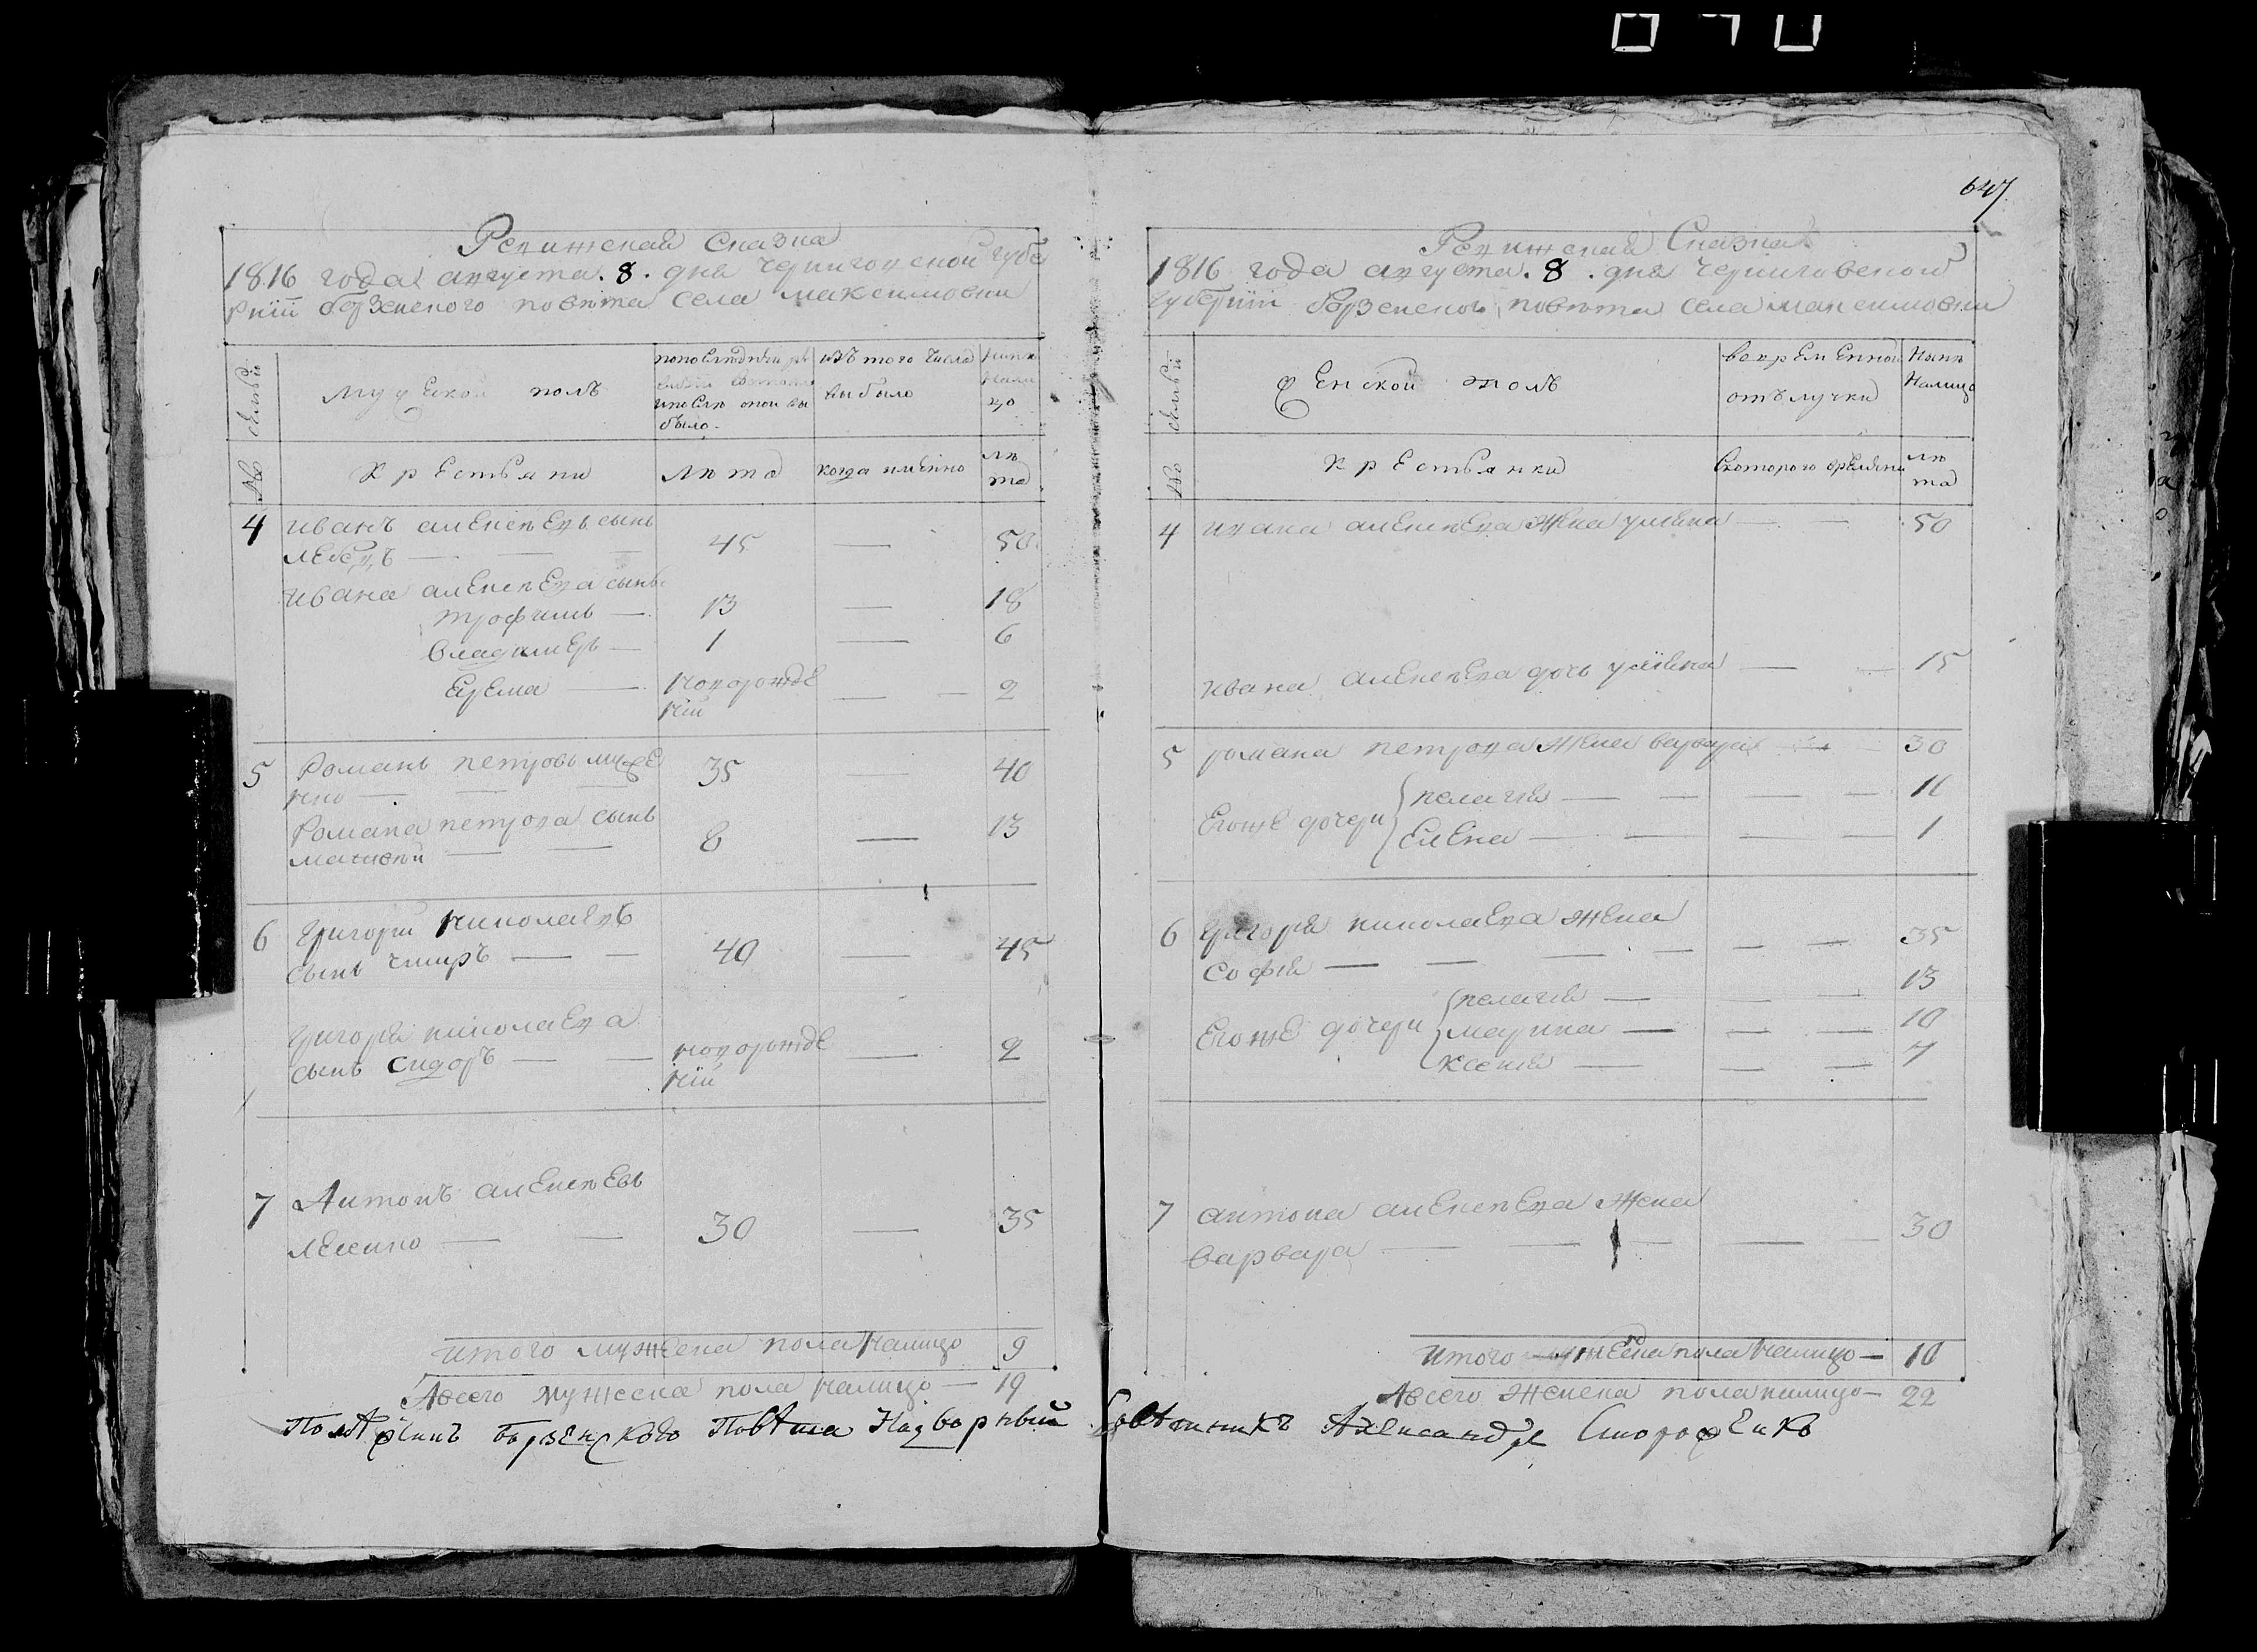 Ревижская Сказка
1816 года августа. 8. дня черниговской губе
рнїи борзенского повѣта села максимовки
семьи
мужеской полъ
по последней ре
визїи состояло
и после оной вы
было.
изъ того числа
выбыло
Нынѣ
Нали
цо
№
Крестьяни
Лѣта
когда имѣнно
лѣ
та
4 иванъ алексѣевъ сынъ
лебедъ — 45 — 50
ивана алексѣева сынъ
трофимъ — 13 — 18
владимеръ — 1 — 6
Ерема — новорожде
нїй — 2
5 Романъ петровъ михе
нко — 35 — 40
Романа петрова сынъ
матвей — 8 — 13
6 григори николаевъ
сынъ чмиръ — 40 — 45
григорія николаева
сынъ сидоръ — новорожде
нїй — 2
7 Антонъ алексѣевъ
лесико — 30 — 35
итого мужеска пола налицо 9
Авсего мужеска пола налицо — 19
647
Ревижская Сказка
1816 года августа. 8. дня черниговской
губернїи борзенского повѣта села максимовки
семьи
женской полъ
во временной
отълучки
Нынѣ
Налицо
№
крестьянки
Скоторого времяни
лѣ
та
4 ивана алексѣева жена улияна — 50
ивана алексѣева дочь улїяна — 15
5 романа петрова жена варвара — 30
Егоже дочери { пелагия — 11
Елена — 1
6 григория николаева жена
софия — 35
13
Егоже дочери { пелагия —
марина — 10
ксения — 7
7 антона алексѣева жена
варвара — 30
Итого женска пола налицо — 10
Авсего женска пола налицо — 22
Повѣренъ Борзенского Повѣта Надворный Совѣтникъ Александръ Стороженко